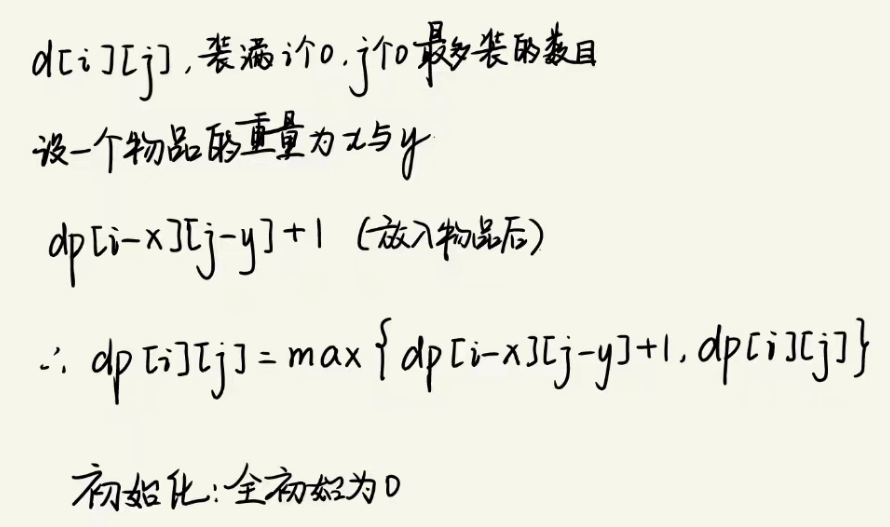 d[i][j],装满i个0,j个0最多装的数目
设一个物品的重量为x与y
dp[i-x][j-y]+1 (放入物品后)
∴ dp[i][j]=max{dp[i-x][j-y]+1,dp[i][j]}
初始化:全初始为0